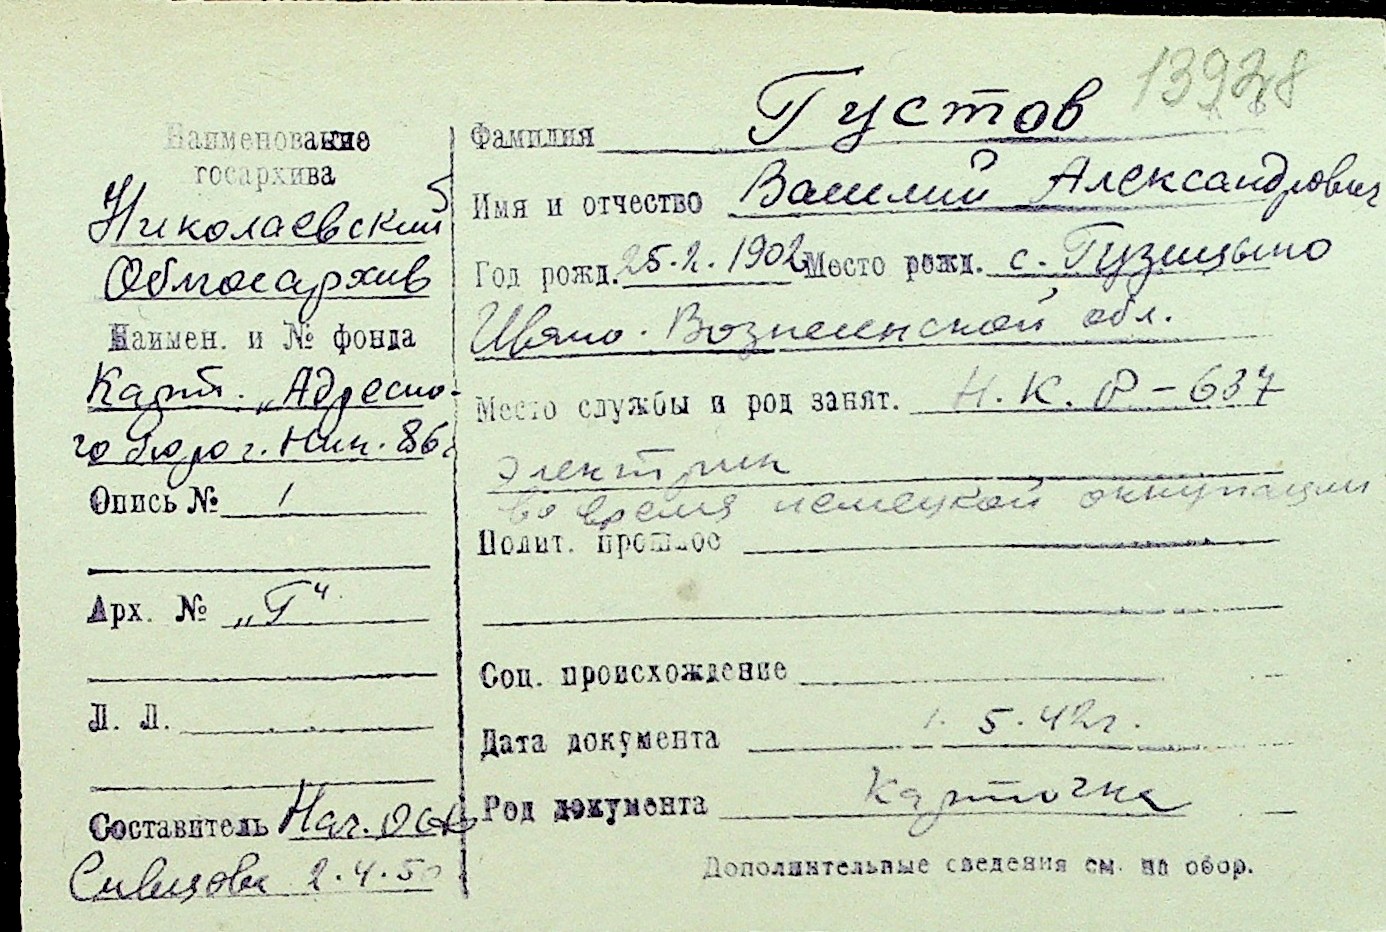 Наименование
госархива
Николаевский
Облгосархив
Наимен. и № фонда
Карт. „Адресно-
го бюро г. Ник. 86г
Опись № 1
Арх. № „Г“
Л. Л.
Составитель Нач. ОСФ
2.4.50
139
Фамилия Густов
Имя и отчество Василий Александрович
Год рожд. 25.2.1902 Место рожд. с.
Ивано. Вознесенской обл.
Место службы и род занят. Н.К.Р-637
электрик
во время немецкой оккупации
Полит. прошлое
Соц. происхождение
Дата документа 1.5.42г.
Род документа Карточка
Дополнительные сведения см. на обор.